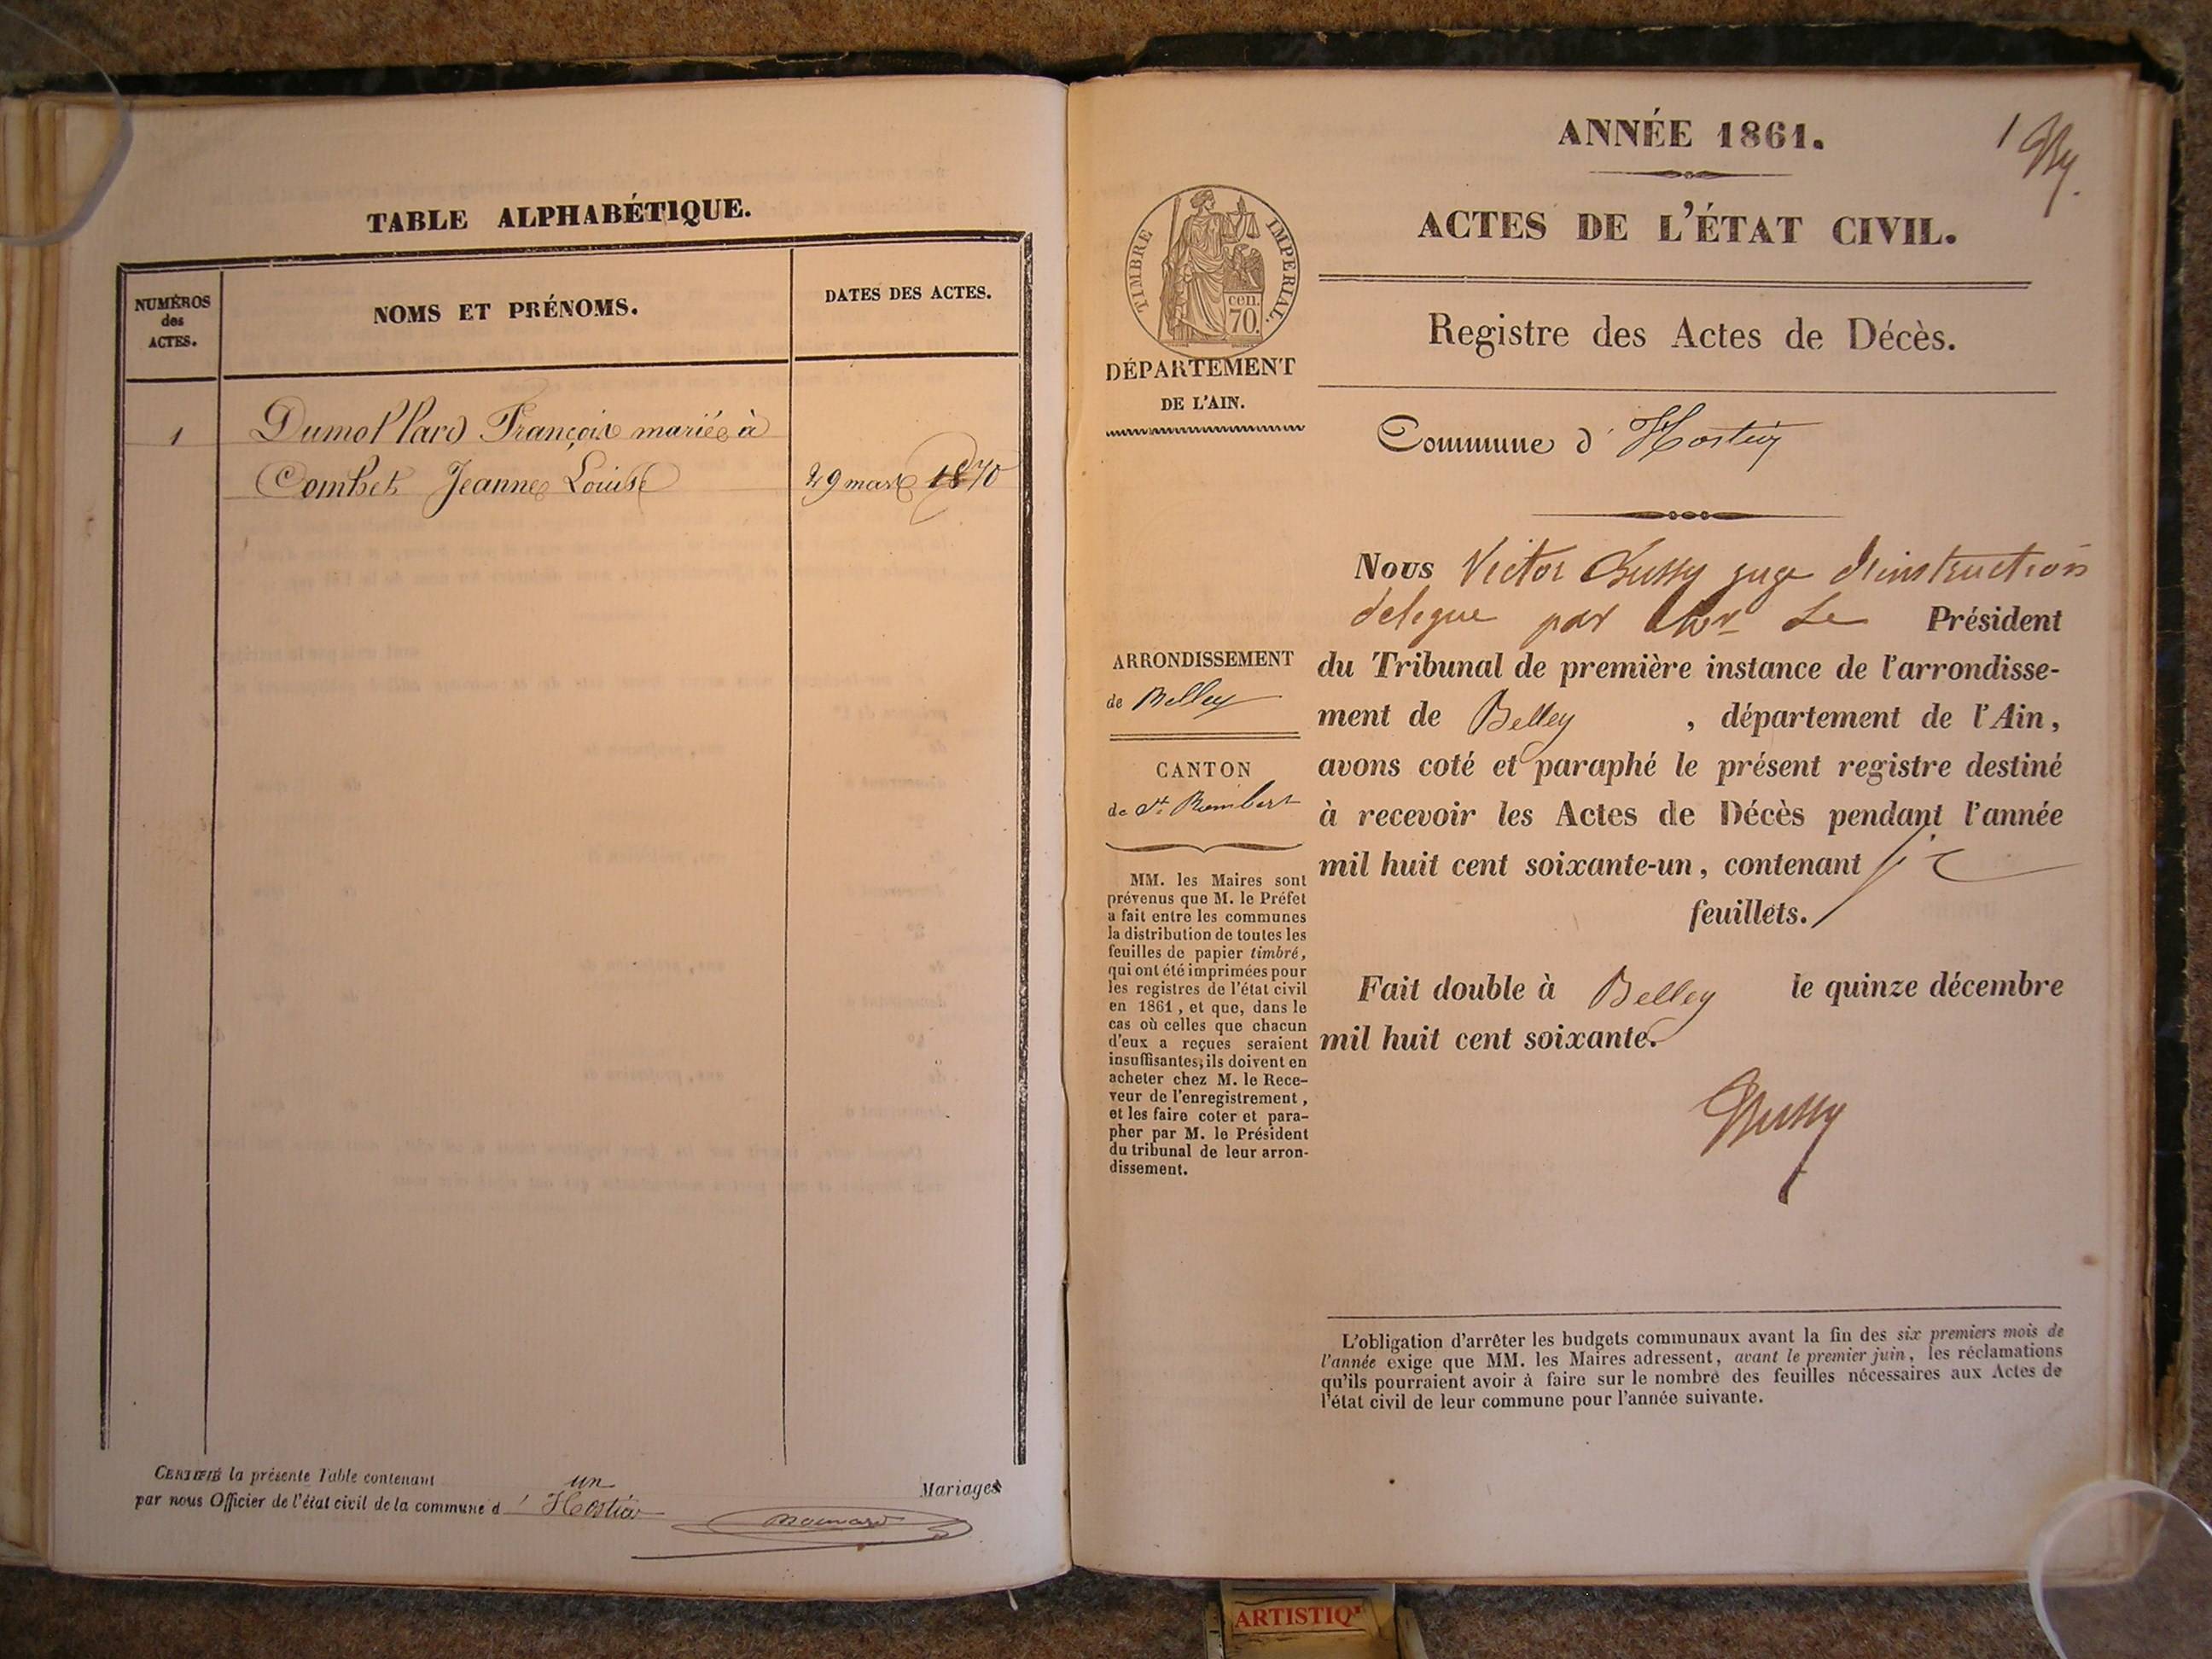 TABLE ALPHABÉTIQUE.
NUMÉROS
des
ACTES.
NOMS ET PRÉNOMS.
DATES DES ACTES.
1
Dumollard François mariée à
Combet Jeanne Louise
29 mars 1870
CERTIFIÉ la présente Table contenant un Mariages
par nous Officier de l'état civil de la commune d' Hostiaz
ANNÉE 1861.
1
ACTES DE L'ÉTAT CIVIL.
TIMBRE IMPERIAL.
cen.
70.
Registre des Actes de Décès.
DÉPARTEMENT
DE L'AIN.
Commune d'
ARRONDISSEMENT
de Belley
CANTON
de St Rambert
MM. les Maires sont
prévenus que M. le Préfet
a fait entre les communes
la distribution de toutes les
feuilles de papier timbré,
qui ont été imprimées pour
les registres de l'état civil
en 1861, et que, dans le
cas où celles que chacun
d'eux a reçues seraient
insuffisantes, ils doivent en
acheter chez M. le Rece-
veur de l'enregistrement,
et les faire coter et para-
pher par M. le Président
du tribunal de leur arron-
dissement.
Nous Victor juge d'instruction
delegue par Mr Le Président
du Tribunal de première instance de l'arrondisse-
ment de Belley , département de l'Ain,
avons coté et paraphé le présent registre destiné
à recevoir les Actes de Décès pendant l'année
mil huit cent soixante-un, contenant
feuillets.
Fait double à Belley le quinze décembre
mil huit cent soixante.
L'obligation d'arrêter les budgets communaux avant la fin des six premiers mois de
l'année exige que MM. les Maires adressent, avant le premier juin, les réclamations
qu'ils pourraient avoir à faire sur le nombre des feuilles nécessaires aux Actes de
l'état civil de leur commune pour l'année suivante.
ARTISTIQ